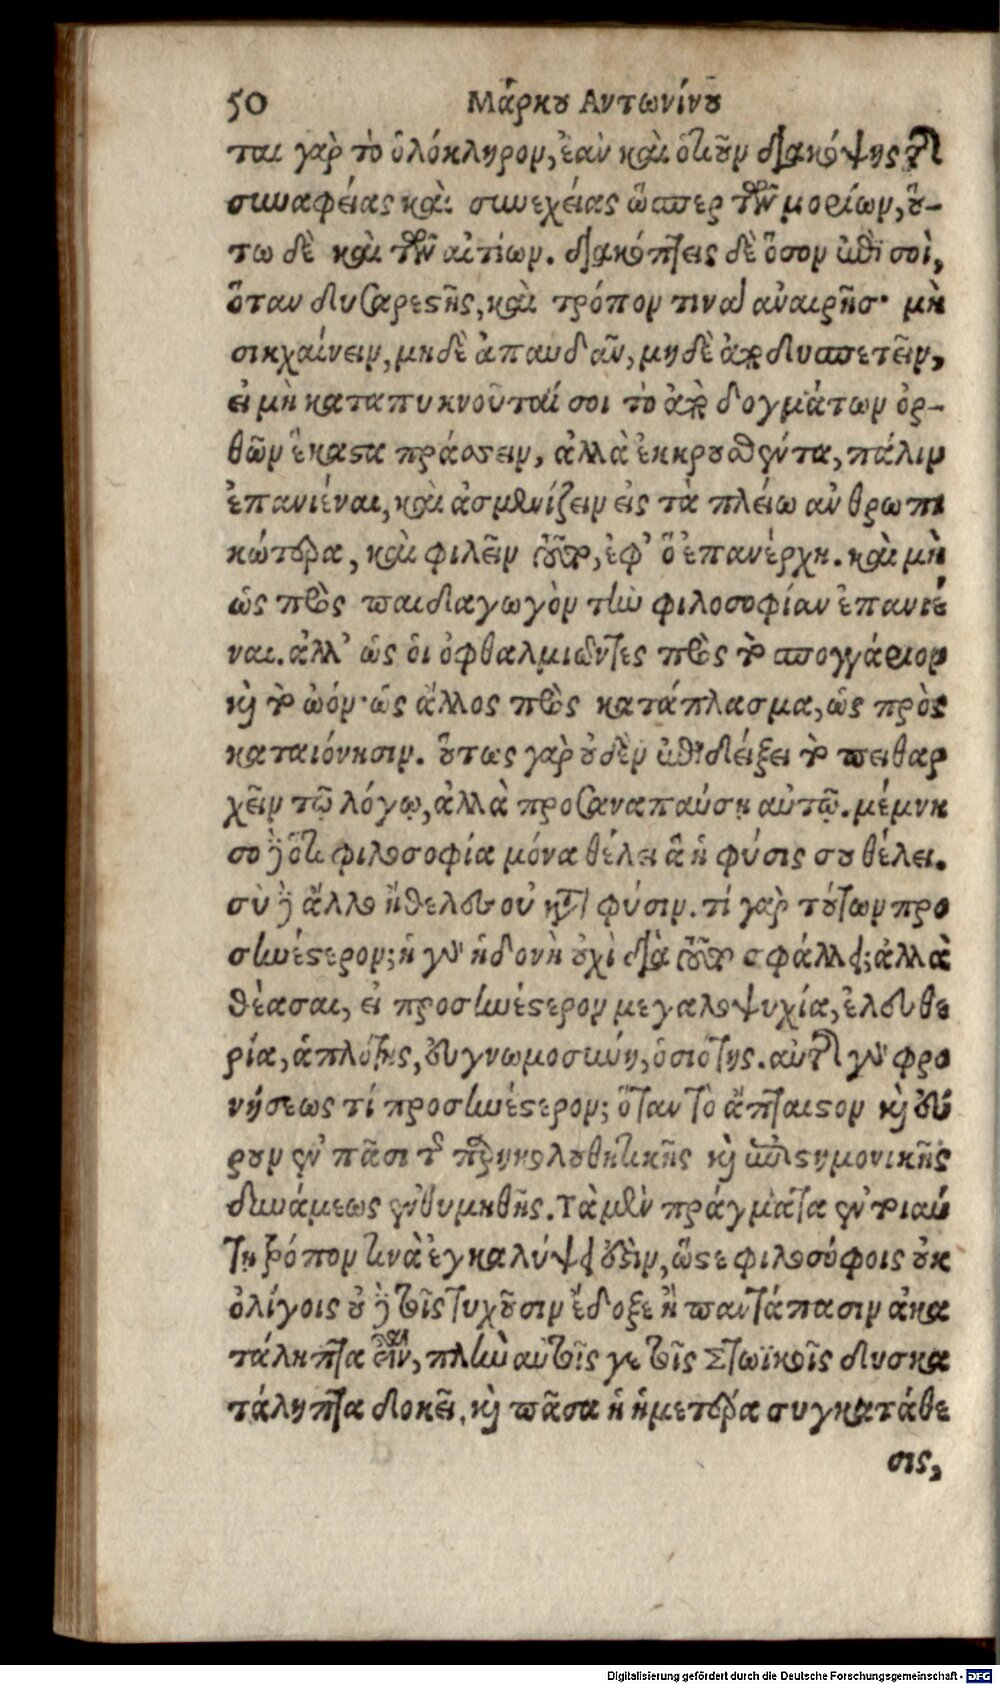 50 Μάρκου Αντωνίνου
ται γὰρ τὸ ὁλόκληρον, ἐὰν καὶ ὁτιοῦν διακόψης τῆς
συναφείας καὶ συνεχείας ὥσπερ τῶν μορίων, οὕ-
τω δὲ καὶ τῶν αἰτίων. διακόπτεις δὲ ὅσον ἐπὶ σοὶ,
ὅταν δυσαρεστῆς, καὶ τρόπον τινα ἀναιρῆσ· μὴ
σικχαίνειν, μηδὲ ἀπαυδᾶν, μηδὲ ἀποδυσπετεῖν,
εἰ μὴ καταπυκνοῦται σοι τὸ ἀπὸ δογμάτων ὀρ-
θῶν ἕκαστα πράσσειν, ἀλλὰ ἐκκρουσθέντα, πάλιν
ἐπανιέναι, καὶ ἀσμενίζειν εἰς τὰ πλείω ἀνθρωπι
κώτερα, καὶ φιλεῖν τοῦτο, ἐφ' ὃ ἐπανέρχη. καὶ μὴ
ὡς πρὸς παιδιαγωγὸν τὴν φιλοσοφίαν ἐπανιέ
ναι. ἀλλ' ὡς οἱ ὀφθαλμιῶντες πρὸς τὸ σπογγάριον
καὶ τὸ ὠόν· ὡς ἄλλος πρὸς κατάπλασμα, ὡς πρὸς
καταιόνησιν. οὕτως γὰρ οὐδὲν ἐπιδείξει τὸ πειθαρ
χεῖν τῷ λόγῳ, ἀλλὰ προσαναπαύσῃ αὐτῷ. μέμνη
σο δὲ ὅτι φιλοσοφία μόνα θέλει ἃ ἡ φύσις σου θέλει.
σὺ δὲ ἄλλο ἤθελες οὐ κατὰ φύσιν. τί γὰρ τούτων προ
σηνέστερον; ἡ γὰρ ἡδονὴ οὐχὶ διὰ τοῦτο σφάλλει; ἀλλὰ
θέασαι, εἰ προσηνέστερον μεγαλοψυχία, ἐλευθε
ρία, ἁπλότης, εὐγνωμοσύνη, ὁσιότης. αὐτῆς γὰρ φρο
νήσεως τί προσηνέστερον; ὅταν τὸ ἄπταιστον καὶ εὔ
ρουν ἐν πᾶσι τῆς παρηκολουθητικῆς καὶ ἐπιστημονικῆς
δυνάμεως ἐνθυμηθῆς. Τὰ μὲν πράγματα ἐν τοιαύ
τῃ τρόπον τινὰ ἐγκαλύψει ἐστὶν, ὥστε φιλοσόφοις οὐκ
ὀλίγοις οὐ δὲ τοῖς τυχοῦσιν ἔδοξε ἢ παντάπασιν ἀκα
τάληπτα εἶναι, πλὴν αὐτοῖς γε τοῖς Στωϊκοῖς δυσκα
τάληπτα δοκεῖ. καὶ πᾶσα ἡ ἡμετέρα συγκατάθε
σις,
Digitalisierung gefördert durch die Deutsche Forschungsgemeinschaft - DFG